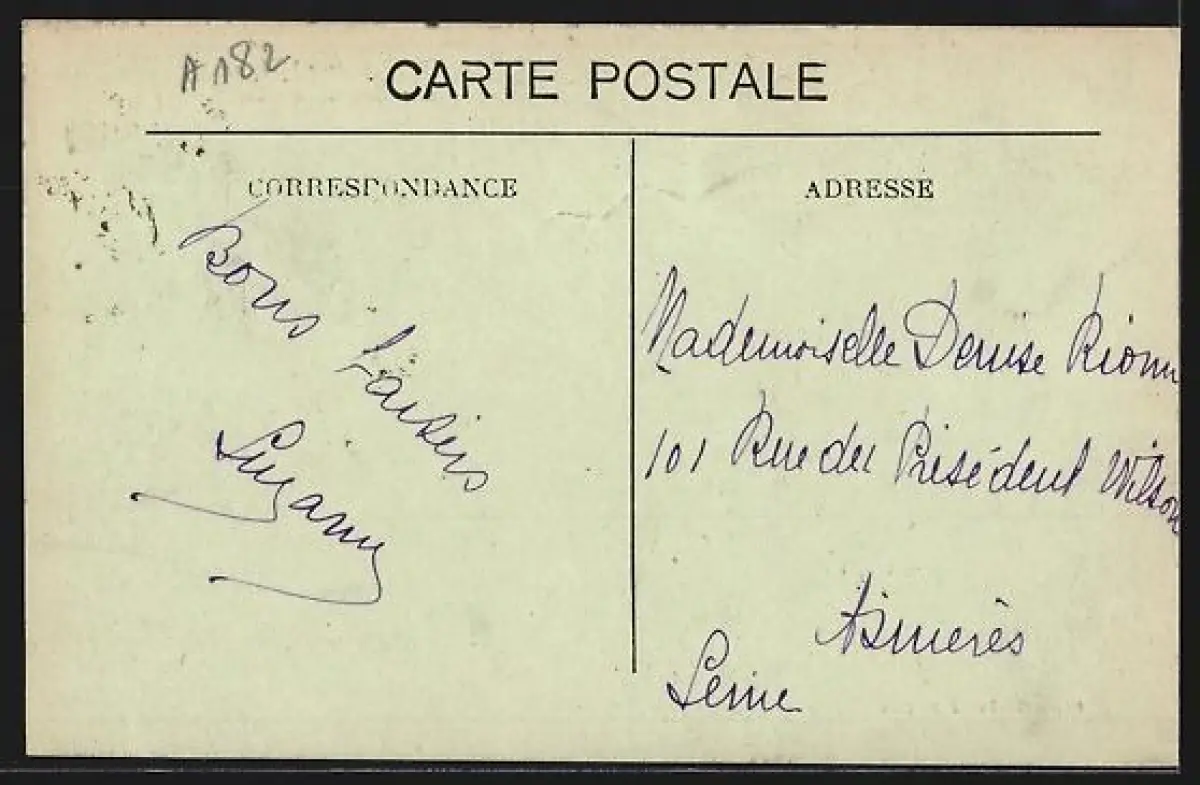 A 182
CARTE POSTALE
CORRESPONDANCE
Bons
baisers
Suzanne
ADRESSE
Mademoiselle Denise
101 Rue du Président Wilson
Asnières
Seine